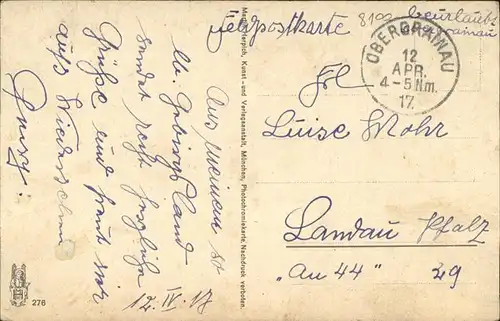 Feldpostkarte
8102
beurlaubt
OBERGRAINAU
12
APR.
4-5 Nm.
17.
Frl.
Luise Mohr
Landau Pfalz
"An 44" 29
Aus meinem so
lb. Gebirgsland
sendet recht herzliche
Grüße und freut sich
aufs Wiedersehen
12. IV. 17
Kunst- und Verlagsanstalt, München, Photochromiekarte, Nachdruck verboten.
276